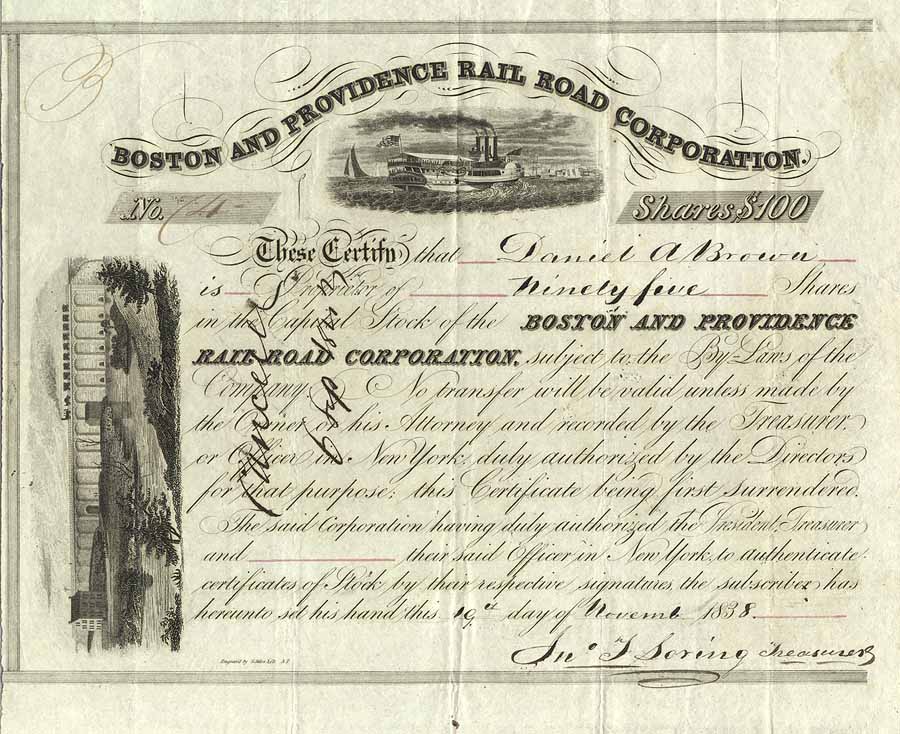 B
BOSTON AND PROVIDENCE RAIL ROAD CORPORATION.
No. 74
Shares $100
These Certify that Daniel A Brown
is Proprietor of Ninety five Shares
in the Capital Stock of the BOSTON AND PROVIDENCE
RAIL ROAD CORPORATION, subject to the By-Laws of the
Company. No transfer will be valid unless made by
the Owner or his Attorney and recorded by the Treasurer
or Officer in New York, duly authorized by the Directors
for that purpose; this Certificate being first surrendered.
The said Corporation having duly authorized the President, Treasurer
and their said Officer in New York, to authenticate
certificates of Stock by their respective signatures, the subscriber has
hereunto set his hand this 19th day of Novemb 1838.
Jno F Loring Treasurer
Cancelld
Engraved by